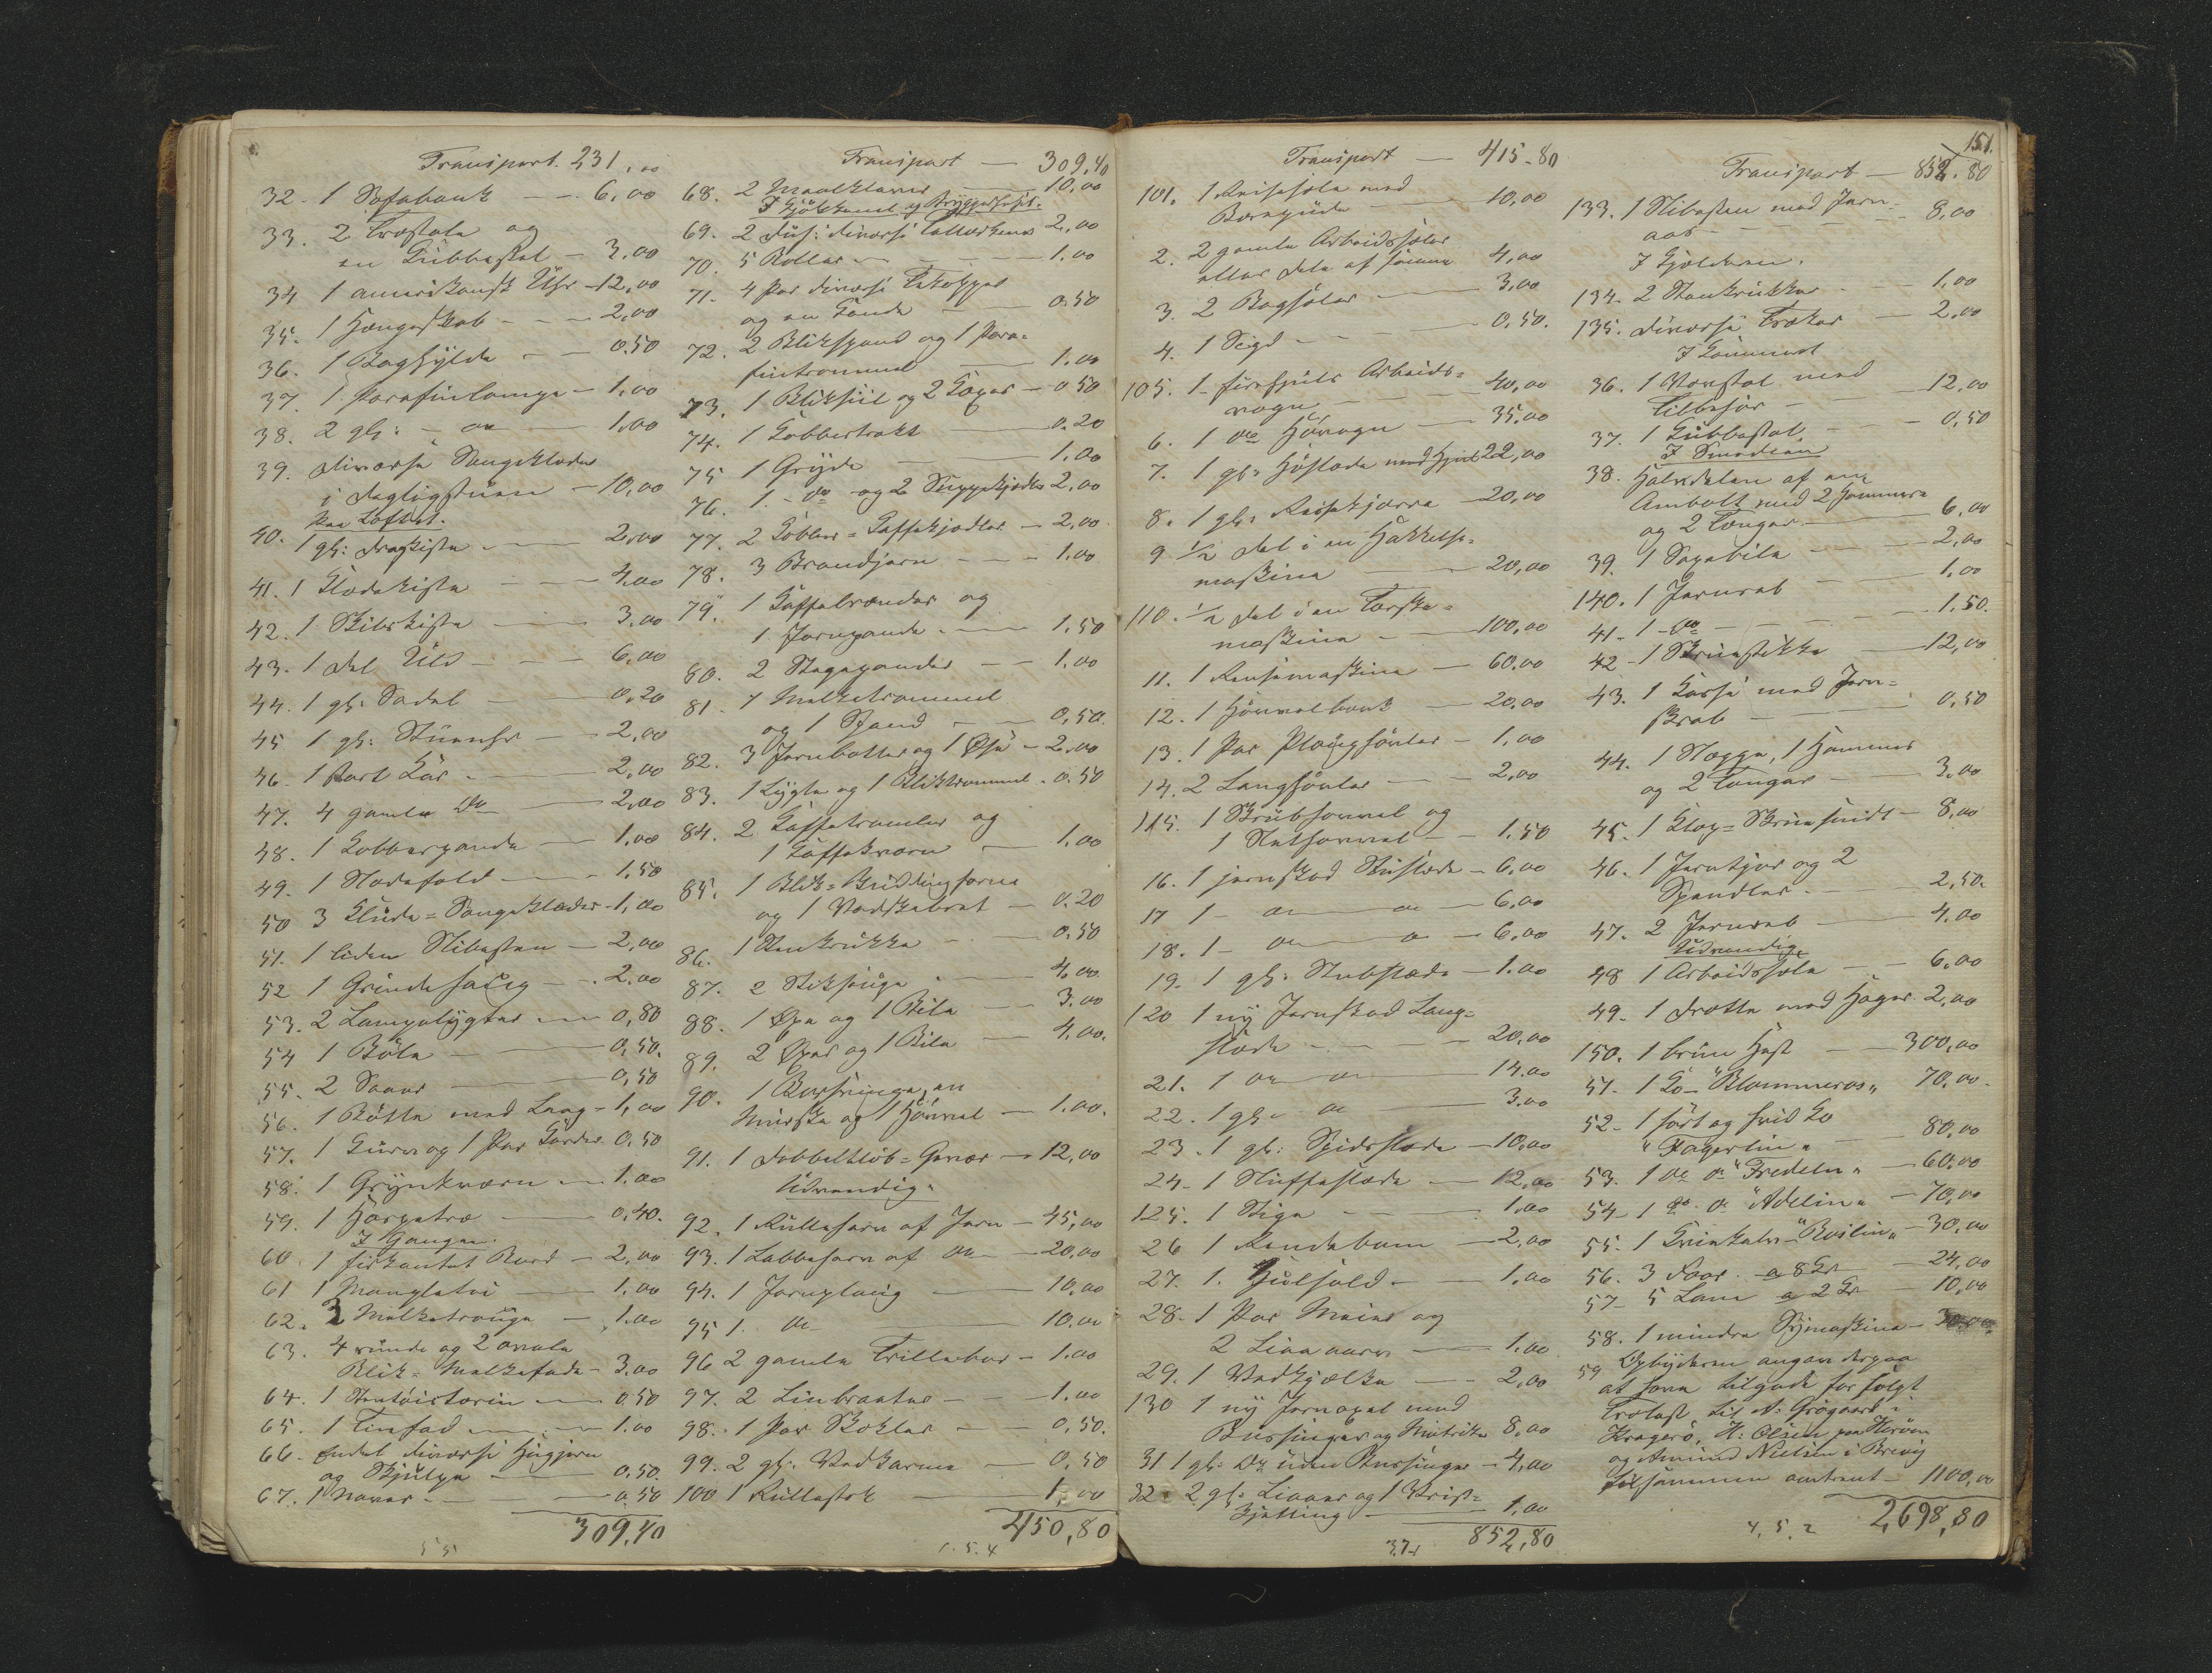 Transport. 231,00
32. 1 Sofabænk — 6,00
33. 2 Træstole og
en Gubbestol — 3.00
34 1 amerikansk Uhr — 12,00
35. 1 Hængeskab — 2,00
36. 1 Boghylde — 0.50
37. 1 Parafinlampe — 1,00
38. 2 gl: — do — 1,00
39. diverse Sengeklæder
i Dagligstuen — 10,00
Paa Loftet.
40. 1 gl: Dragkiste — 2,00
41. 1 Klædekiste — 4,00
42. 1 Skibskiste — 3.00
43. 1 del Uld — 6,00
44. 1 gl: Sadel — 0,20
45 1 gl: Stueuhr — 2,00
46. 1 stort Kar — 2,00
47. 4 gamle do — 2,00
48. 1 Kobberpande — 1,00
49. 1 — 1,50
50 3 Klude-Sengeklæder — 1,00
51. 1 liden Slibesten — 2,00
52 1 Grindesaug — 2,00
53. 2 Lampelygter — 0,80
54 1 Bøle — 0,50.
55. 2 — 0,50
56. 1 Bøtte med Laag — 1,00
57. 1 Kurv og 1 Par Karder 0.50
58. 1 Grynkværn — 1.00
59. 1 — 0,40.
I Gangen.
60. 1 firkantet Bord — 2,00
61 1 Mangletøi — 1,00
62. 3 Melketrauge — 1.00
63. 4 runde og 2 ovale
Blik-Melkefade — 3.00
64. 1 Stentøiterin — 0.50
65. 1 Tinfad — 1.00
66. Endel diverse
og — 0,50.
67. 1 Naver — 0.50
309,40
Transport — 309,40
68. 2 — 10,00
I Kjøkkenet og Bryggerhuset.
69. 2 dus: diverse Tallerkener 2,00
70. 5 Boller — 1.00
71. 4 Par diverse Tekopper
og en Kande — 0.50
72. 2 Blikspand og 1 Para-
fintrommel — 1,00
73. 1 Bliksiil og 2 — 0.50
74. 1 Kobbertrakt — 0.20
75 1 Gryde — 1.00
76. 1 — do — og 2 Suppekjedler 2,00
77. 2 Kobber-Kaffekjedler — 2,00
78. 3 Brandjern — 1.00
79. 1 Kaffebrænder og
1 Jernpande — 1,50
80. 2 Stegepander — 1.00
81. 7 Melketrommel
og 1 Spand — 0,50.
82. 3 Jernbøtter og 1 Øse — 2.00
83. 1 Lygte og 1 Bliktrommel — 0.50
84. 2 Kaffetromler og
1 Kaffekværn — 1.00
85. 1 Blik-Buddingform
og 1 Vadskebræt — 0.20
86. 1 Stenkrukke — 0.50
87. 2 Stiksauge — 4,00
88. 1 Øxe og 1 Bile — 3.00
89. 2 Øxer og 1 Bile — 4,00.
90. 1 en
og 1 Høvel — 1.00.
91. 1 dobbeltløb-Gevær — 12,00
Udvendig.
92. 1 Rulleharv af Jern — 45,00
93. 1 Labbeharv af do — 20,00
94. 1 Jernplaug — 10,00
95 1. do — 10.00
96 2 gamle Trillebør — 1.00
97. 2 — 1,00
98. 1 Par Skokler — 0,50.
99. 2 gl: Vedkarme — 0,50
100 1 Rullestok — 1,00
450,80
Transport — 415-80
101. 1 Reisesele med
10,00
2. 2 gamle Arbeidsseler
eller dele af samme 4,00
3. 2 Bagseler — 3,00
4. 1 Sigd — 0,50.
105. 1 firehjuls Arbeids-
vogn — 40,00
6. 1 do Høvogn — 35,00
7. 1 gl: med Hjul 22,00
8. 1 gl: Reisekjærre — 20,00
9 1/2 del i en Hakkelse-
maskine — 20,00
110. 1/2 del i en Tærske-
maskine — 100,00
11. 1 Rensemaskine — 60.00
12. 1 Høvelbænk — 20,00
13. 1 Par Pløughøvler — 1,00
14. 2 Langhøvler — 2,00
115. 1 Skrubhøvel og
1 Slethøvel — 1.50
16. 1 jernskod — 6.00
17 1 — do — do — 6,00
18. 1 — do — do — 6,00
19. 1 gl: — 1.00
120 1 ny Jernskod Lang-
slæde — 20,00
21. 1 do — do — 14.00
22. 1 gl — do — 3.00
23. 1 gl: Spidsslæde — 10,00
24. 1 — 12,00
125. 1 Stige — 1.00
26 1 — 2,00
27. 1. — 1,00
28. 1 Par Meier og
2 — 1.00
29. 1 Vedkjælke — 2,00
130 1 ny Jernaxel med
Bussinger og Møtrike 8,00
31 1 gl: do uden Bussinger — 4,00
32 2 gl: Liaaer og 1
Kjetting — 1,00
852,80
151.
Transport — 852.80
133. 1 Slibesten med Jern-
8,00
I Kjælderen.
134. 2 Stenkrukker — 1,00
135. diverse Trækar — 2,00
I Kammeret
36. 1 Vævstol med
Tilbehør — 12,00
37. 1 Gubbestol — 0,50
I Smedien
38. Halvdelen af en
Ambolt med 2 Hammere
og 2 Tænger — 6,00
39. 1 — 2,00
140. 1 — 1,00
41. 1 — do — 1.50.
42. 1 Skruestikke — 12,00
43. 1 Kasse med Jern-
skrab — 0,50
44. 1 1 Hammer
og 2 Tænger — 3,00
45. 1 — 8,00
46. 1 og 2
2,50.
47. 2 — 4.00
Udvendig.
48 1 Arbeidssele — 6,00
49. 1 Drætte med Hager 2,00
150. 1 brun Hest — 300,00
51. 1 Ko "Blommeros" 70,00.
52. 1 sort og hvid Ko
"Fagerlin" — 80,00
53. 1 do do "Fredelin" — 60.00
54. 1 do. do "Adelin" — 70,00
55. 1 Kvigkalv "Roslin" — 30,00
56. 3 Faar a 8 Kr — 24,00
57. 5 Lam a 2 Kr — 10,00
58. 1 mindre Symaskine — 30.00
59 Opbyderen angav despaa
at have tilgode for solgt
Trælast til N: Grøgaard i
Kragerø, H: Olsen paa Herøen
og Amund Nielsen i Brevig
tilsammen omtrent — 1100,00
2,698,80